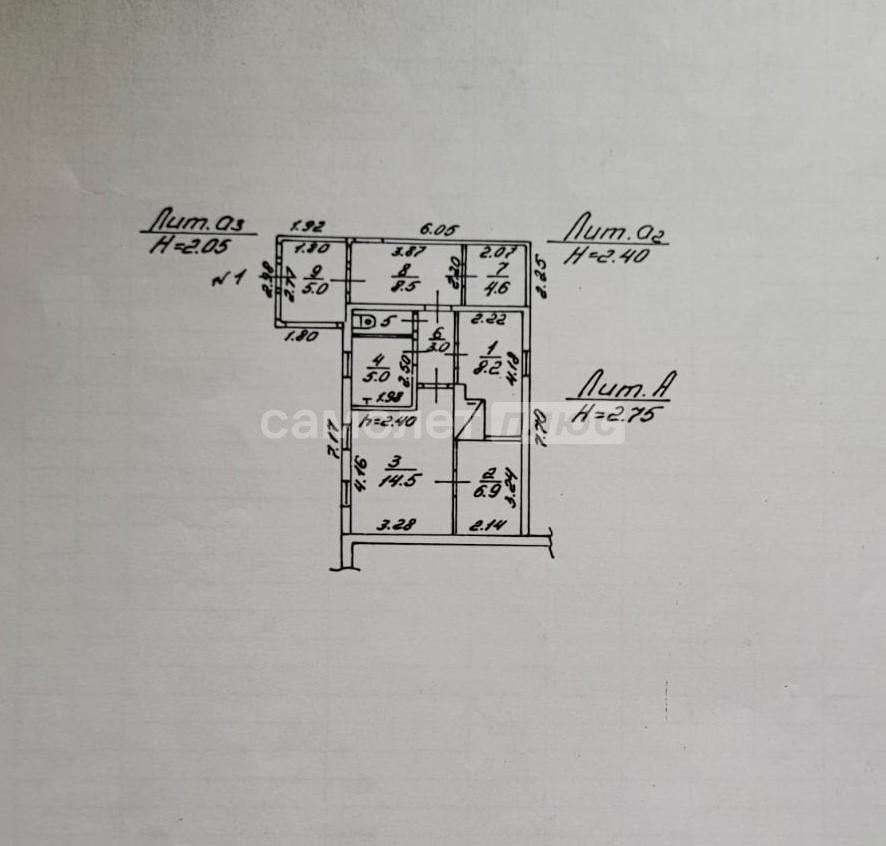 Лит. а3
H=2.05
1.92
6.05
Лит. а2
H=2.40
1.80
3.87
2.07
N1
2.98
2.77
9
5.0
8
8.5
2.20
7
4.6
2.25
1.80
5
6
3.0
2.22
1
8.2
4.18
4
5.0
2.50
1.98
h=2.40
Лит. А
H=2.75
самолет плюс
7.17
4.16
3
14.5
2
6.9
3.24
7.70
3.28
2.14